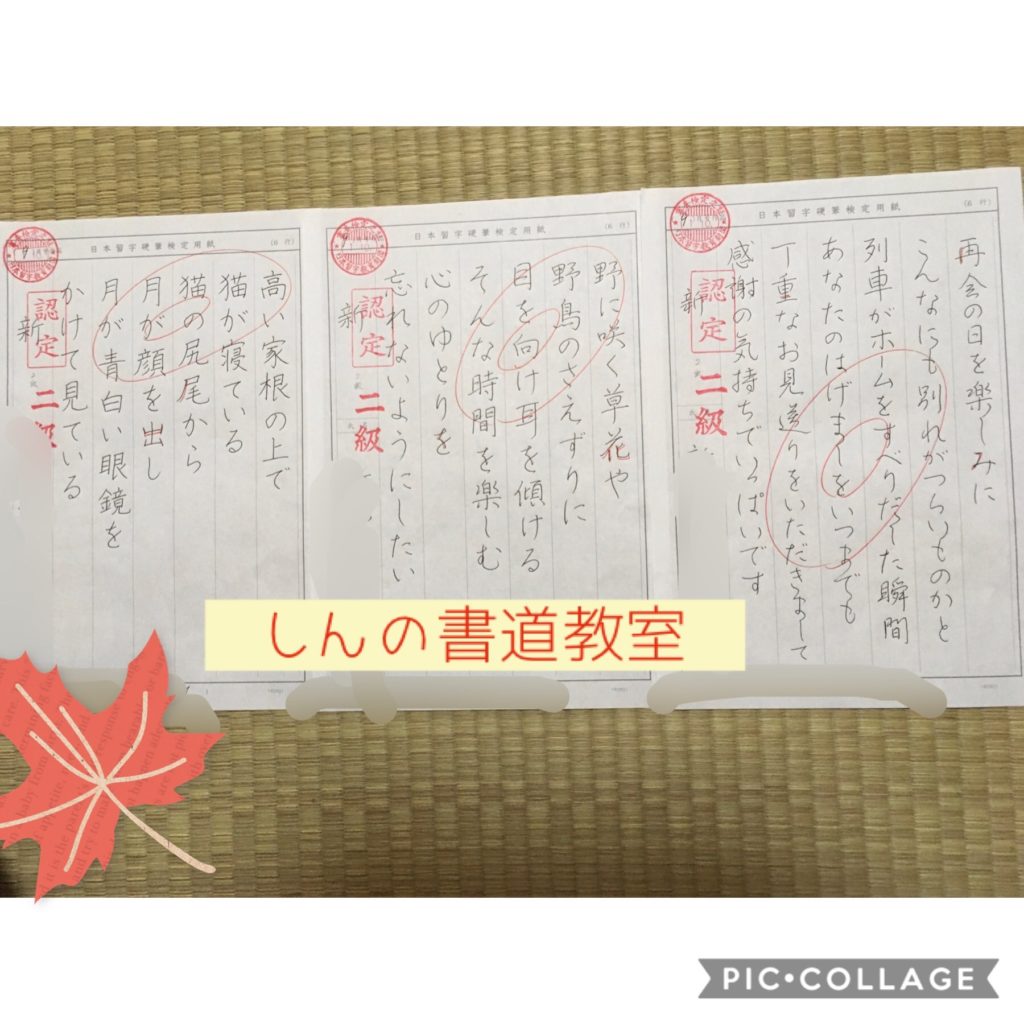 日本習字硬筆検定用紙
(6 行)
再会の日を楽しみに
こんなにも別れがつらいものかと
列車がホームをすべりだした瞬間
あなたのはげましをいつまでも
丁重なお見送りをいただきまして
感謝の気持ちでいっぱいです
新
認定
二級
日本習字硬筆検定用紙
(6 行)
野に咲く草花や
野鳥のさえずりに
目を向け耳を傾ける
そんな時間を楽しむ
心のゆとりを
忘れないようにしたい
新
認定
二級
日本習字硬筆検定用紙
(6 行)
高い家根の上で
猫が寝ている
猫の尻尾から
月が顔を出し
月が青白い眼鏡を
かけて見ている
新
認定
二級
しんの書道教室
PIC•COLLAGE